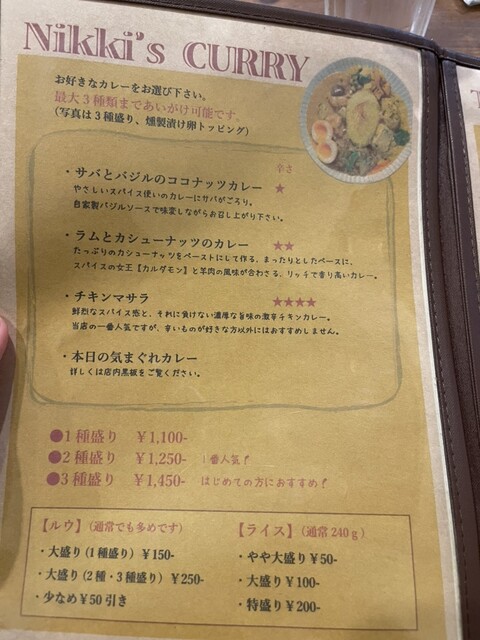 Nikki's CURRY
お好きなカレーをお選び下さい。
最大3種類まであいがけ可能です。
(写真は3種盛り、燻製漬け卵トッピング)
辛さ
・サバとバジルのココナッツカレー ★
やさしいスパイス使いのカレーにサバがごろり。
自家製バジルソースで味変しながらお召し上がり下さい。
・ラムとカシューナッツのカレー ★★
たっぷりのカシューナッツをペーストにして作る、まったりとしたベースに、
スパイスの女王【カルダモン】と羊肉の風味が合わさる、リッチで香り高いカレー。
・チキンマサラ ★★★★
鮮烈なスパイス感と、それに負けない濃厚な旨味の激辛チキンカレー。
当店の一番人気ですが、辛いものが好きな方以外にはおすすめしません。
・本日の気まぐれカレー
詳しくは店内黒板をご覧ください。
●1種盛り ¥1,100-
●2種盛り ¥1,250- 1番人気!
●3種盛り ¥1,450- はじめての方におすすめ!
【ルウ】(通常でも多めです)
・大盛り(1種盛り)¥150-
・大盛り(2種・3種盛り)¥250-
・少なめ¥50引き
【ライス】(通常240g)
・やや大盛り¥50-
・大盛り¥100-
・特盛り¥200-